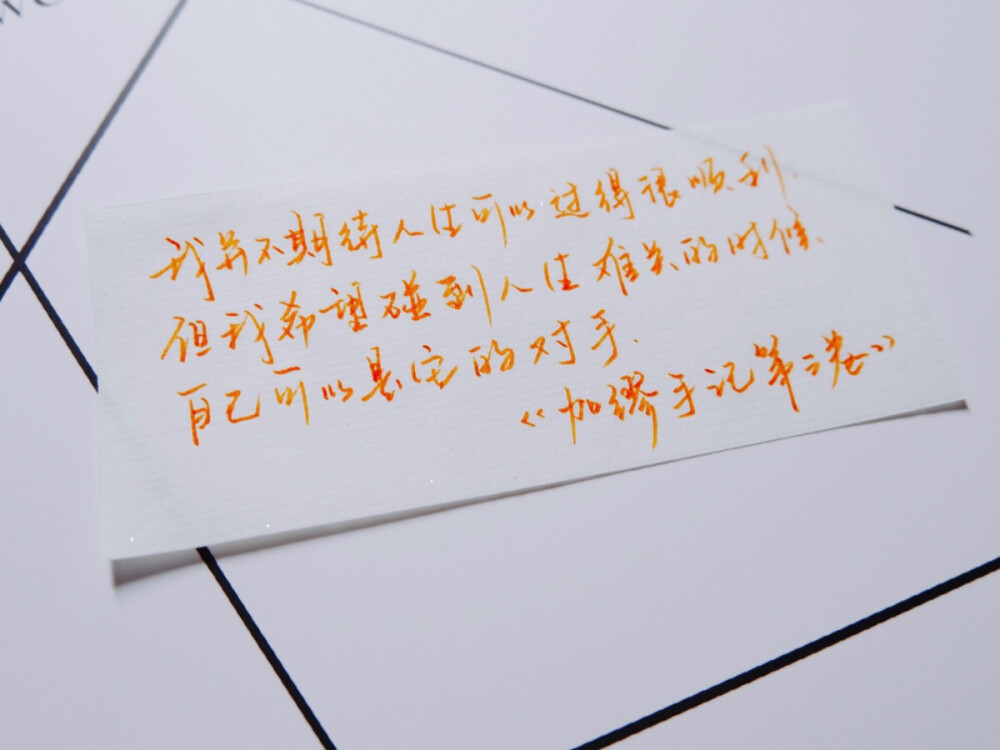 我并不期待人生可以过得很顺利.
但我希望碰到人生难关的时候、
自己可以是它的对手.
《加缪手记第二卷》